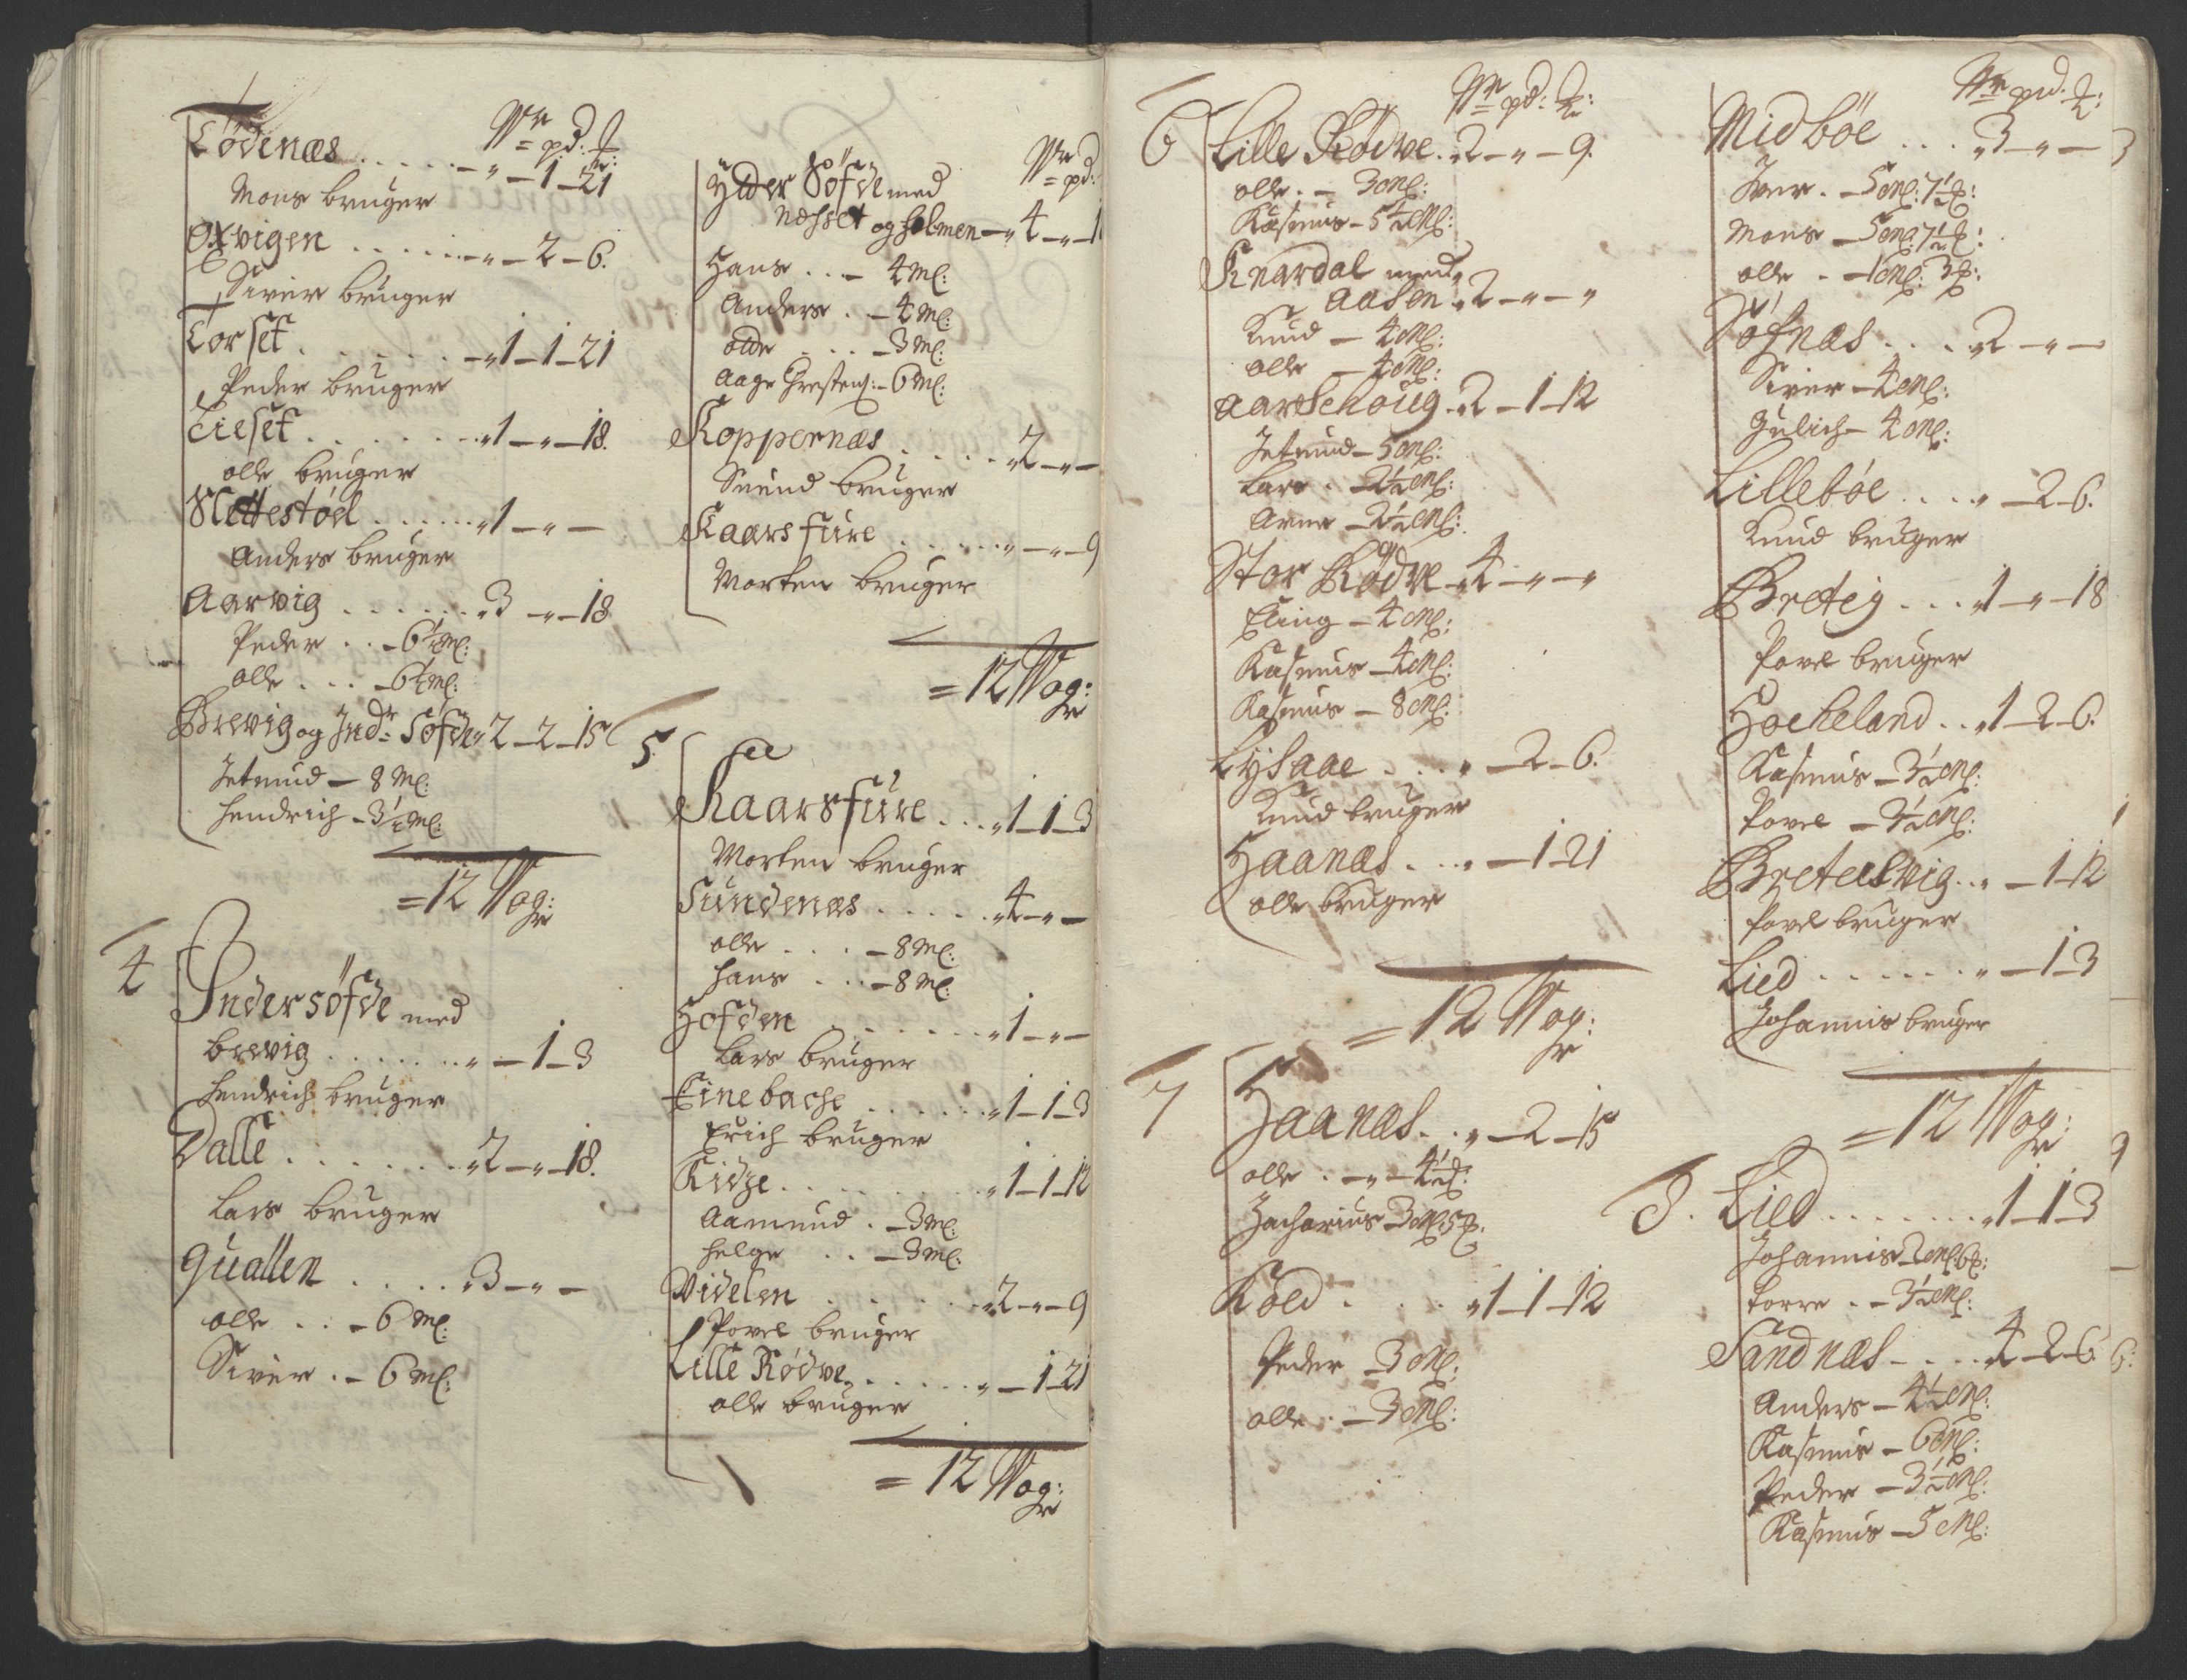 Wr pd: ℔:
Lødenæs . . . . . — „ — 1 — 21
Mons bruger
Oxvigen . . . . . — „ — 2 — 6.
Siver bruger
Torset . . . . . — „ 1 — 1 — 21
Peder bruger
Lilset . . . . . „ 1 — „ — 18.
olle bruger
Slettestøel . . . . . „ 1 — „ —
Anders bruger
Aarvig . . . . . „ 3 — „ — 18
Peder . . — 6½ Mℓ:
olle . . . — 6½ Mℓ:
Brevig og Indr: Søfde „ 2 — 2 — 15
Jetmud — 8 Mℓ:
Hendrich — 3½ Mℓ:
= 12 Wog:r
4
Indersøfde med
brevig . . . . . „ — 1 — 3
Hendrich bruger
Dalle . . . . . „ 2 — „ — 18.
Lars bruger
Quallen . . . . „ 3 — „ —
olle . . — 6 Mℓ:
Siver . — 6 Mℓ:
Wr pd:
Ytter Søfde med
Nesset og holmen — „ 4 — „ — 1
Hans . . — 4 Mℓ:
Anders . — 4 Mℓ:
odde . . . — 3 Mℓ:
Aage Chrestens: — 6 Mℓ:
Koppernæs . . . . . „ 2 — „ —
Svend bruger
Kaarsfure . . . . . „ — „ — 9
Morten bruger
= 12 Wog:r
5
Kaarsfure . . . „ 1 — 1 — 3
Morten bruger
Sundenæs . . . . . „ 4 — „ —
olle . . . — 8 Mℓ:
hans . . . — 8 Mℓ:
Hofden . . . . . „ 1 — „ —
Lars bruger
Linebache . . . . . „ 1 — 1 — 3
Erich bruger
Ridze . . . . . „ 1 — 1 — 12
Aamund . — 3 Mℓ:
helge . . — 3 Mℓ:
Videlen . . . . . „ 2 — „ — 9
Povel bruger
Lille Rødve . . . . . „ — 1 — 21
olle bruger
= 12 Wog:r
6
Wr pd: ℔:
Lille Rødve . 2 — „ — 9.
olle . — 3 Mℓ:
Rasmus — 5½ Mℓ:
Knardal med
Aasen „ 2 — „ — „
Knud — 4 Mℓ:
olle — 4 Mℓ:
Aarsehoug . 2 — 1 — 12
Jetmud — 5 Mℓ:
Lars . — 2½ Mℓ:
Arne — 2½ Mℓ:
Stor Rødve „ 4 — „ — „
Eling — 4 Mℓ:
Rasmus — 4 Mℓ:
Rasmus — 8 Mℓ:
Lysaae . . . „ — 2 — 6.
Knud bruger
Haanæs . . . „ — 1 — 21
olle bruger
= 12 Wog:r
7
Haanæs . . „ — 2 — 15
olle . — „ — 4½ ℔:
Zacharius — 3 Mℓ: 5 ℔:
Røed . . . . „ 1 — 1 — 12
Peder — 3 Mℓ:
olle . — 3 Mℓ:
Wr pd. ℔:
Midbøe . . . „ 3 — „ —
Iver . — 5 Mℓ: 7½ ℔:
Mons — 5 Mℓ: 7½ ℔:
olle . — 1 Mℓ: 3 ℔:
Søfnæs . . . . „ 2 — „ —
Siver — 4 Mℓ:
Gulich — 4 Mℓ:
Lillebøe . . . . „ — 2 — 6.
Knud bruger
Breteig . . . „ 1 — „ — 18
Povel bruger
Hocheland . . „ 1 — 2 — 6.
Rasmus — 3½ Mℓ:
Povel — 3½ Mℓ:
Bretelsvig . . „ — 1 — 12
Povel bruger
Lied . . . . . „ — 1 — 3
Johannis bruger
= 12 Wog:r
8.
Lied . . . . . „ 1 — 1 — 3
Johannis — 2 Mℓ: 6 ℔:
torre . — 3½ Mℓ:
Sandnæs — . . . „ 4 — 2 — 6
Anders — 4½ Mℓ:
Rasmus — 6 Mℓ:
Peder — 3½ Mℓ:
Rasmus — 5 Mℓ: